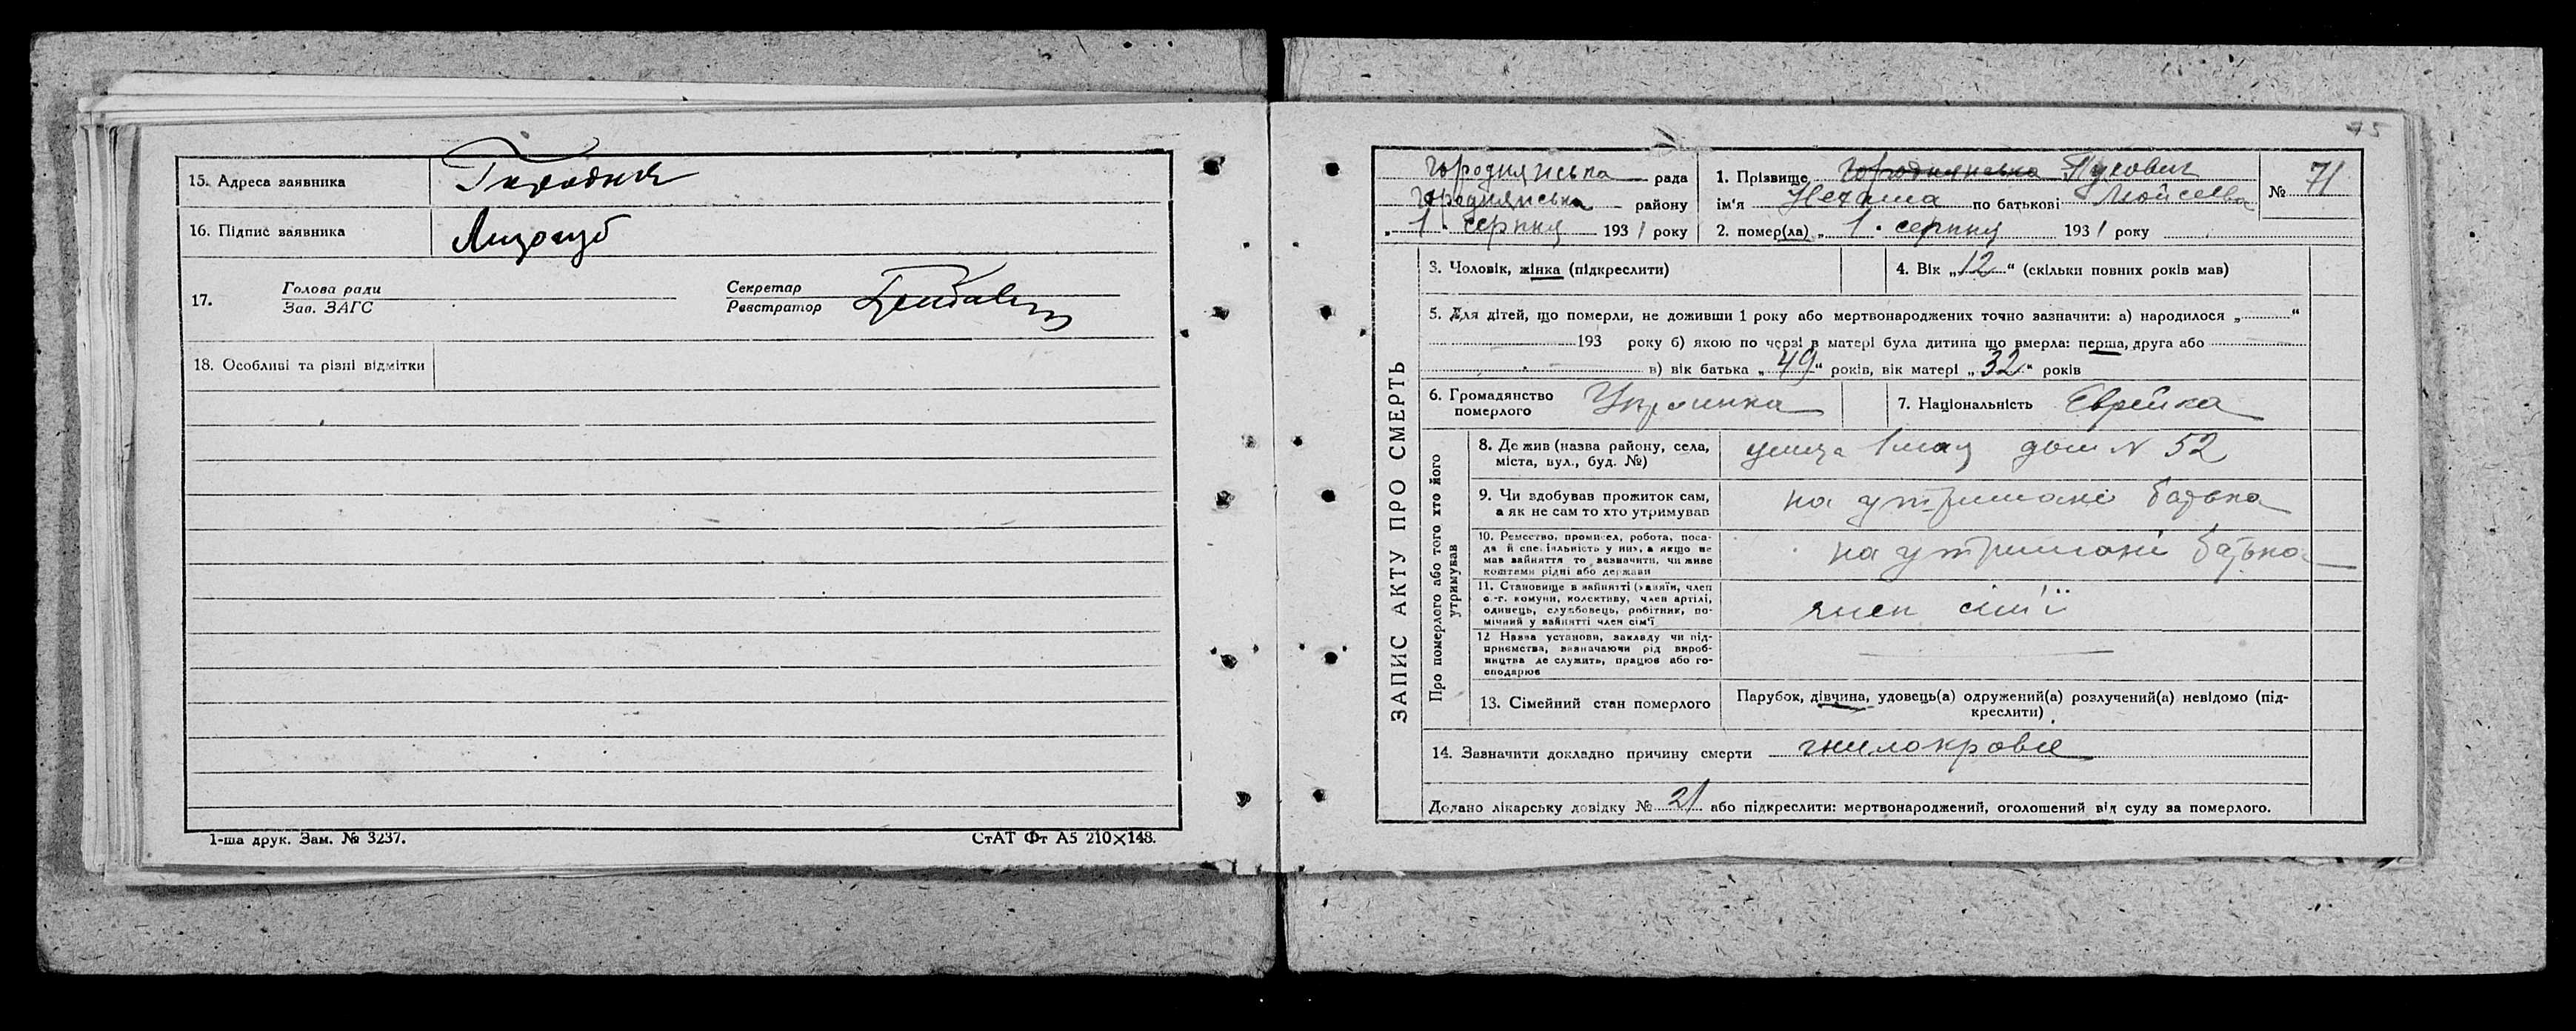 15. Адреса заявника Городня
16. Підпис заявника Лизогуб
17. Голова ради
Зав. ЗАГС
Секретар
Реєстратор
18. Особливі та різні відмітки
1-ша друк. Зам. № 3237.
СтАТ Фт А5 210×148.
75
Городнянська рада
Городнянська району
„ 1 " серпня 1931 року
1. Прізвище Городнянська Пукович
ім'я Нехама по батькові Мойсеєва
№ 71
2. помер(ла) „ 1 " серпня 1931 року
ЗАПИС АКТУ ПРО СМЕРТЬ
3. Чоловік, жінка (підкреслити)
4. Вік „12" (скільки повних років мав)
5. Для дітей, що померли, не доживши 1 року або мертвонароджених точно зазначити: а) народилося „ "
193 року б) якою по черзі в матері була дитина що вмерла: перша, друга або
в) вік батька „49" років, вік матері „32" років
6. Громадянство
померлого Украинка
7. Національність Єврейка
Про померлого або того хто його
утримував
8. Де жив (назва району, села,
міста, вул., буд. №) улица 1 мая дом N 52
9. Чи здобував прожиток сам,
а як не сам то хто утримував на утримані батька
10. Ремество, промисел, робота, поса-
да й спеціяльність у них, а якщо не
мав зайняття то зазначити, чи живе
коштами рідні або держави на утримані батька
11. Становище в зайнятті (хазяїн, член
с.-г. комуни, колективу, член артілі,
одинець, службовець, робітник, по-
мічний у зайнятті член сім'ї член сім'ї
12 Назва установи, закладу чи під-
приємства, зазначаючи рід вироб-
ництва де служить, працює або го-
сподарює
13. Сімейний стан померлого
Парубок, дівчина, удовець(а) одружений(а) розлучений(а) невідомо (під-
креслити)
14. Зазначити докладно причину смерти гнилокровіє
Додано лікарську довідку № 21 або підкреслити: мертвонароджений, оголошений від суду за померлого.